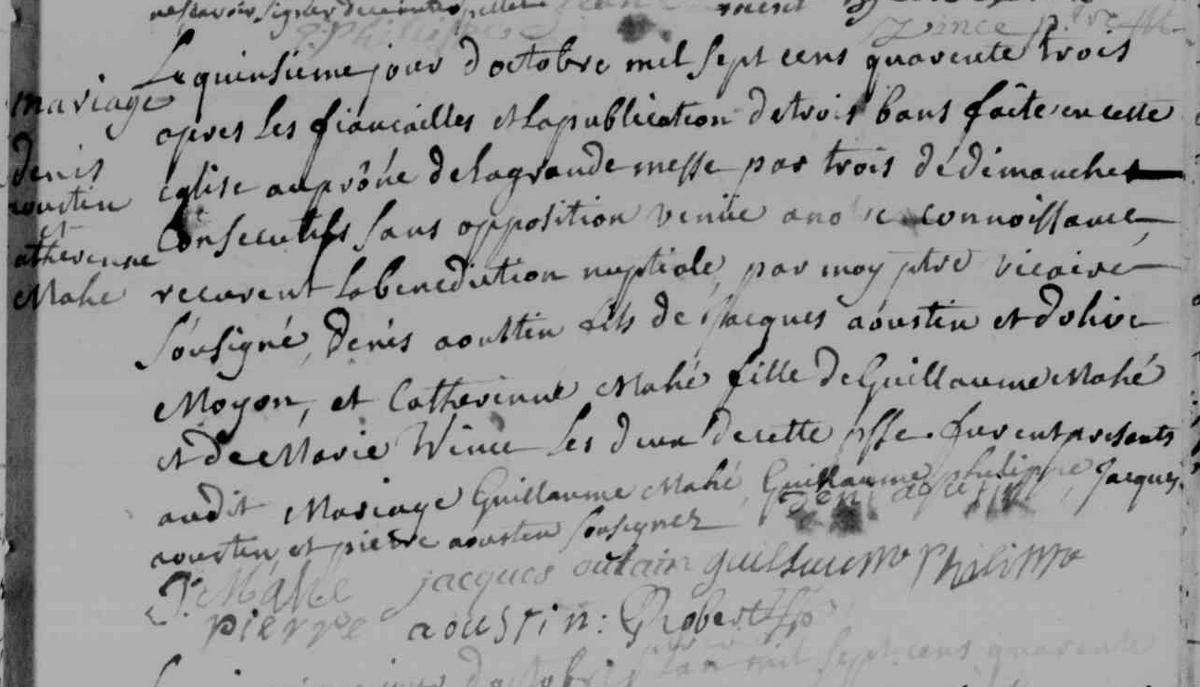 mariage
denis
aoustin
et
catherinne
Mahé
Le quinsieme jour d octobre mil sept cens quarente trois
apres les fiancailles et la publication de trois bans faite en cette
eglise au prône de la grande messe par trois de dimanches
consecutifs sans opposition venüe a connoissance
recurent la benediction nuptiale, par moy ptre vicaire
sousigné, Denis aoustin fils de jacques aoustin et dolive
Moyon, et Catherinne Mahé fille de Guillaume Mahé
et de Marie Vince les deux de cette psse. furent presants
audit Mariage Guillaume Mahé, Guillaume philippe, Jacques
aoustin et pierre aoustin sousignez
G. Mahe jacques outain guillaumme Philippe
pierre aoustin: Robert
d octobre mil sept cens quarente